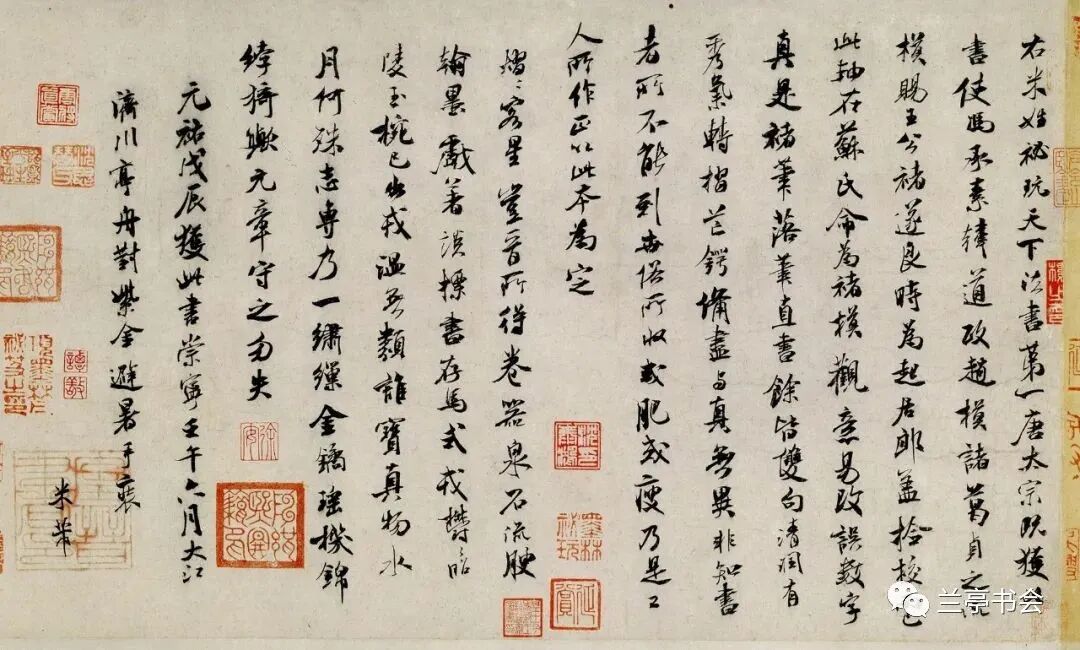 右米姓祕玩天下法書第一唐太宗既獲此
書使馮承素韓道政趙模諸葛貞之流
模賜王公褚遂良時為起居郎盖撿校也
此軸在蘇氏命為褚模觀意易改誤數字
真是褚筆落筆直書餘皆雙勾清潤有
秀氣轉摺芒鍔備盡与真無異非知書
者所不能到世俗所收或肥或瘦乃是工
人所作正以此本為定
熠〻客星豈晉所得卷器泉石流腴
翰墨戲著談標書存馬式欝〻昭
陵玉椀已出戎溫無類誰寶真物水
月何殊志專乃一繡繅金鐍瑶機錦
綷猗歟元章守之勿失
元祐戊辰獲此書崇寧壬午六月大江
濟川亭舟對紫金避暑手裝
米芾
兰亭书会